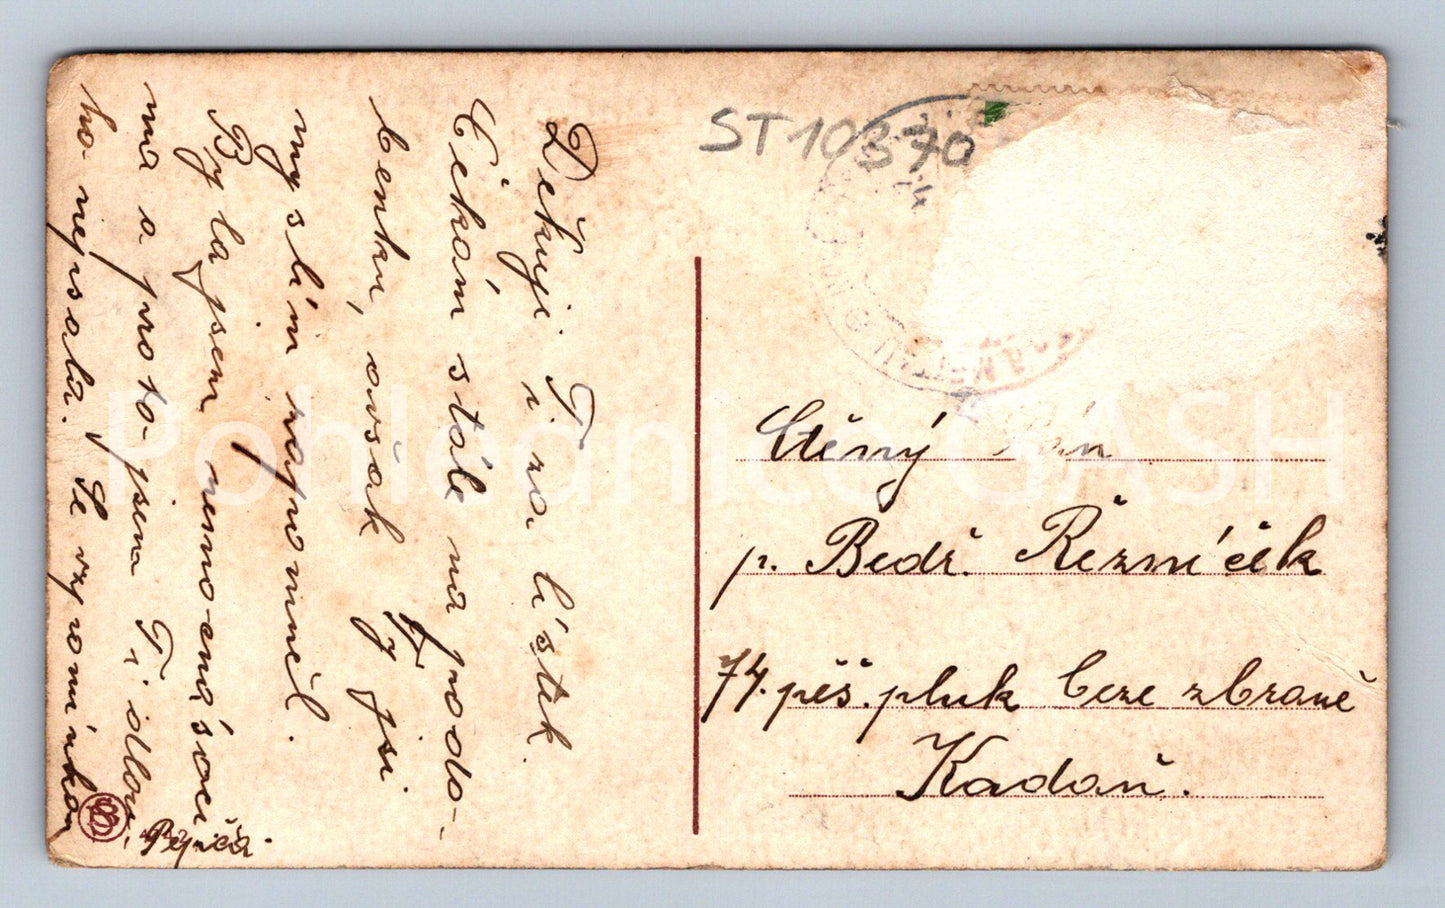 ST10370
Děkuji Ti za lístek.
Čekám stále na podo-
benku, avšak Ty jsi
my slím zapomněl.
Byla jsem nemocná
ma a proto jsem Ti dlou-
ho nepsala. Se vzpomínkou
Ctěný pán
p. Bedř. Řezníček
74. pěš. pluk beze zbraně
Kadaň.
Pohlednice GASH